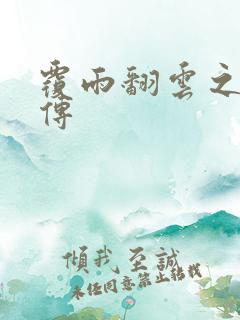 覆雨翻雲之
傳
傾我至誠
未任同意禁止轉載